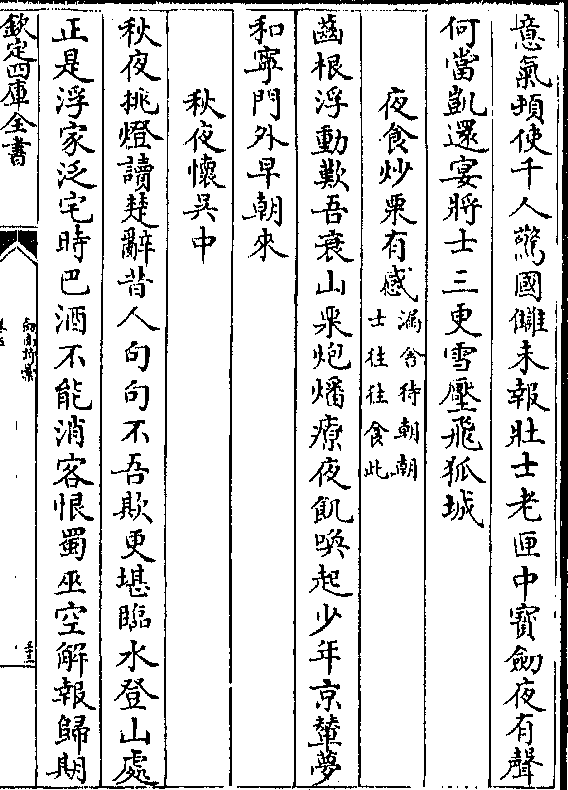 意氣頓使千人驚國讎未報壯士老匣中寳劒夜有聲
何當凱還宴將士三更雪壓飛狐城
夜食炒栗有感漏舍待朝朝
士往往食此
齒根浮動歎吾衰山栗炮燔療夜飢喚起少年京輦夢
和寧門外早朝來
秋夜懷吳中
秋夜挑燈讀楚辭昔人句句不吾欺更堪臨水登山處
正是浮家泛宅時巴酒不能消客恨蜀巫空解報歸期
欽定四庫全書